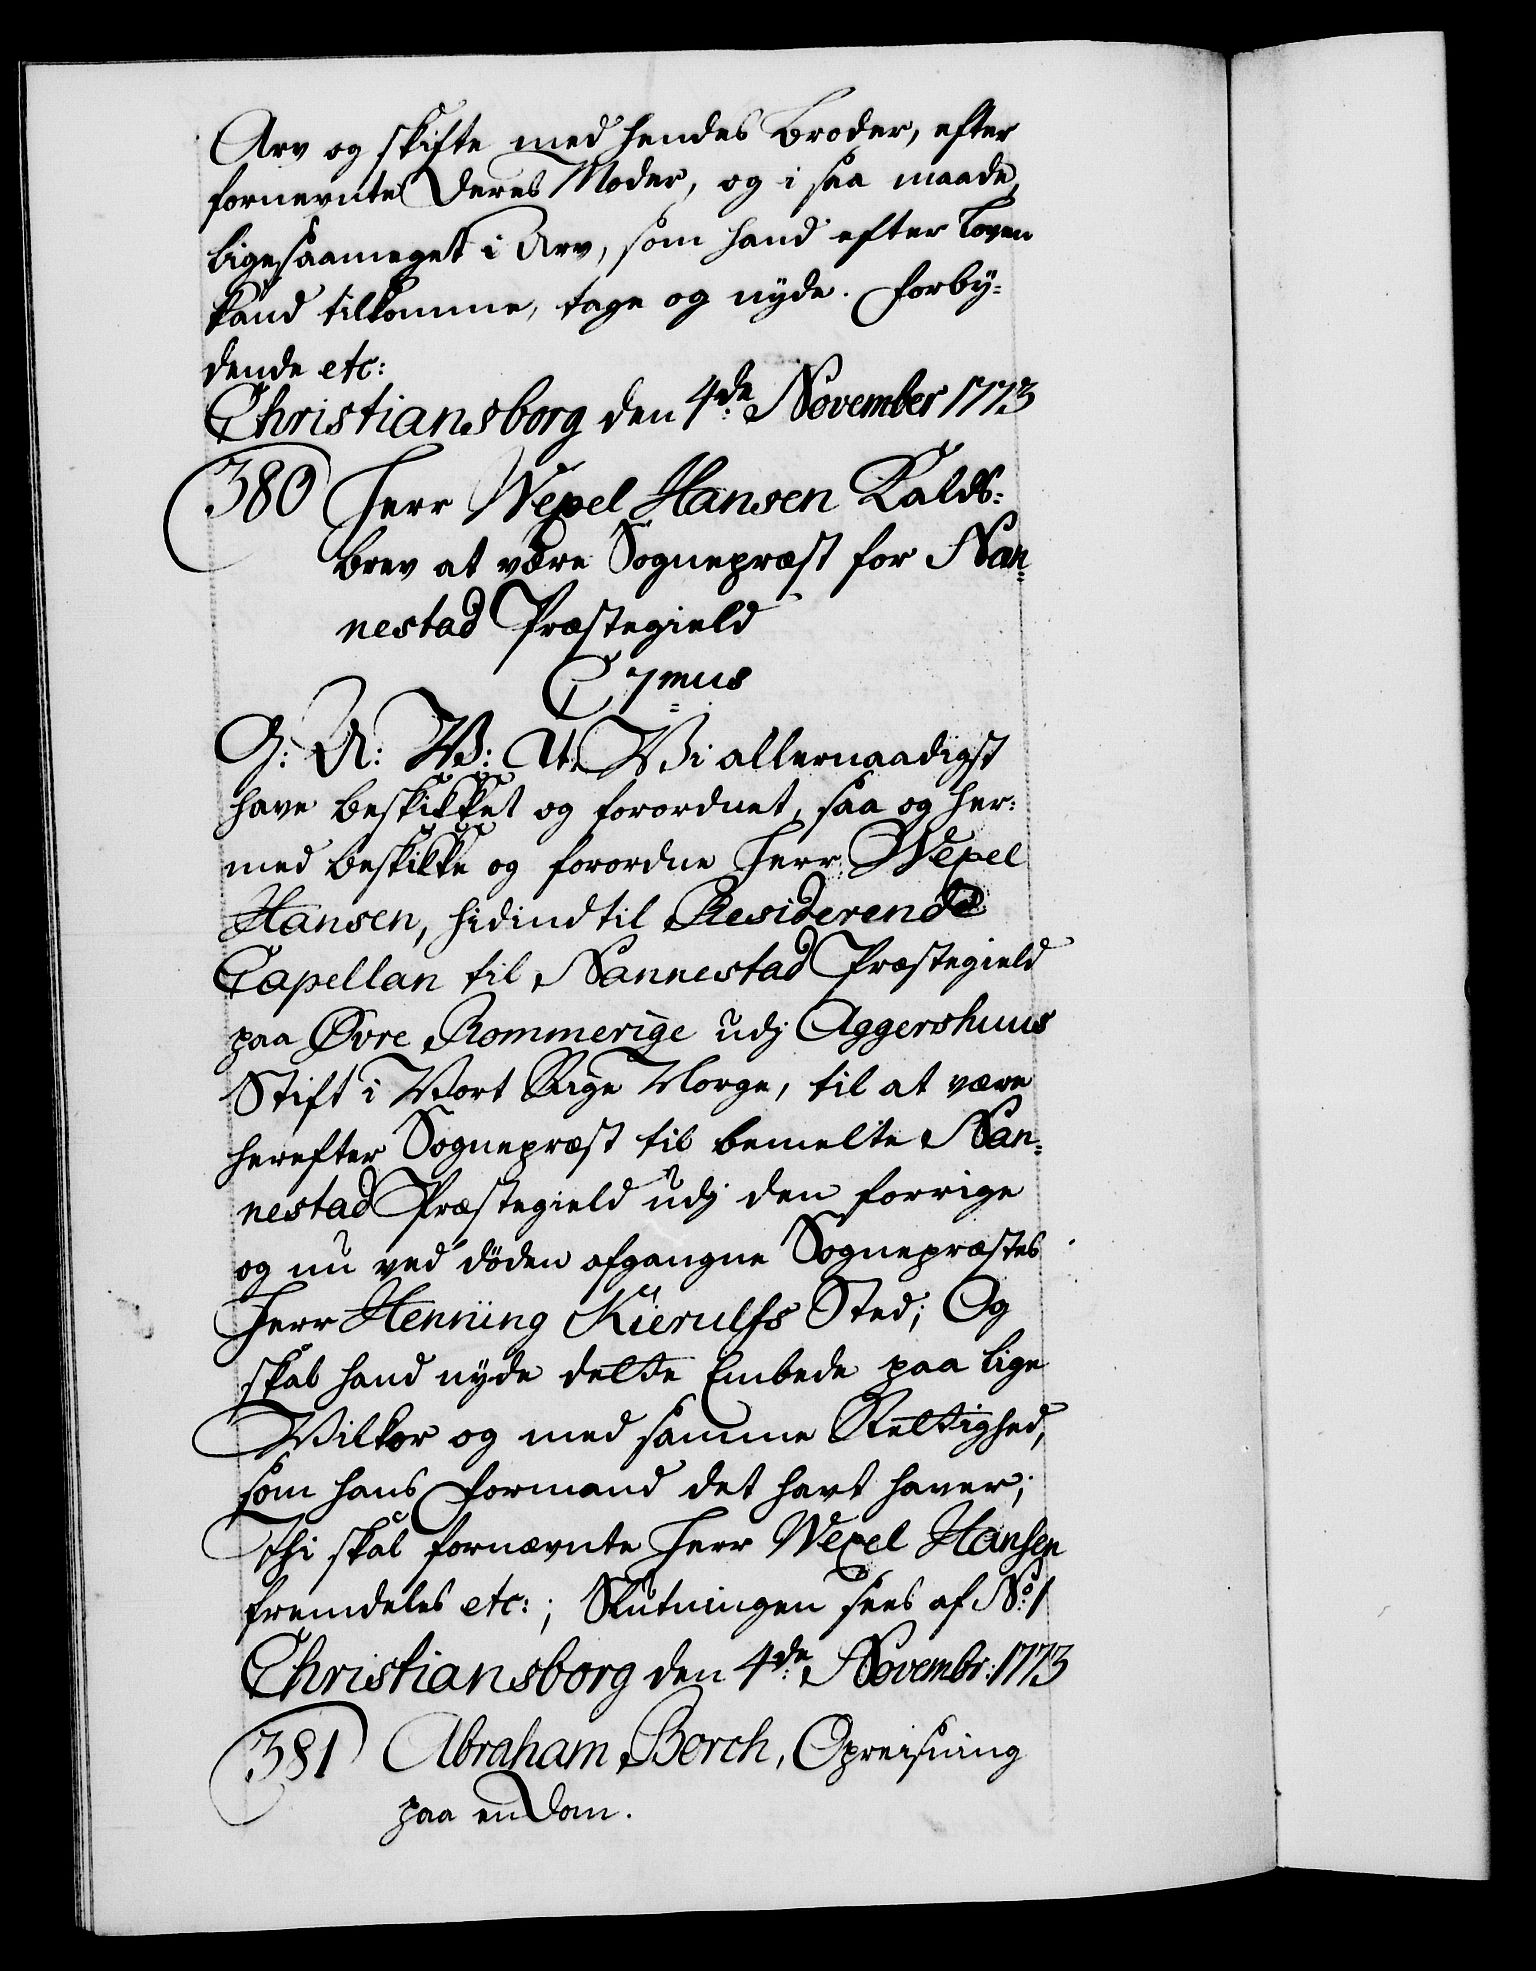 Arv og skifte med hendes Broder, efter
fornevnte Deres Moder, og i saa maade
ligesaameget i Arv, som hand efter Loven
kand tilkomme, tage og nyde. Forby-
dende etc:
Christiansborg den 4de November 1773
380 Herr Wexel Hansen Kalds-
brev at være Sognepræst for Nan-
nestad Præstegield
C 7mus
G: A: V: At Vi allernaadigst
have beskikket og forordnet, saa og her-
med beskikke og forordne Herr Wexel
Hansen, hidindtil Residerende
Capellan til Nannestad Præstegield
paa Øvre Rommerige udj Aggershuus
Stift i Vort Rige Norge, til at være
herefter Sognepræst til bemelte Nan-
nestad Præstegield udj den forrige
og nu ved döden afgangne Sognepræstes
Herr Henning Kierulfs Sted; Og
skal hand nyde dette Embede paa lige
Vilkor og med samme Rettighed,
som hans Formand det havt haver;
Thi skal fornævnte Herr Wexel Hansen
fremdeles etc: ; Slutningen sees af No: 1
Christiansborg den 4de Novembr: 1773
381 Abraham Borch, Opreisning
paa en Dom.